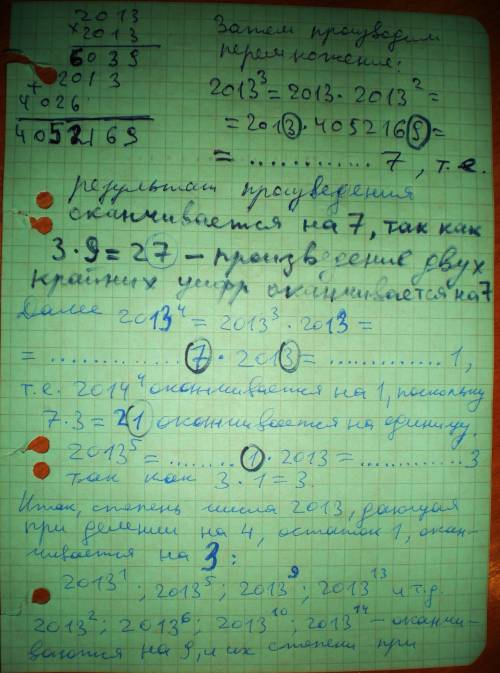 2013
× 2013
6039
+ 2013
4026
4052169
Затем производим
перемножение:
2013³ = 2013 · 2013² =
= 2013 · 4052169 =
= ............ 7, т.е.
результат произведения
оканчивается на 7, так как
3 · 9 = 27 – произведение двух
крайних цифр оканчивается на 7
Далее 2013⁴ = 2013³ · 2013 =
= ............ 7 · 2013 = ............ 1,
т.е. 2014⁴ оканчивается на 1, поскольку
7 · 3 = 21 оканчивается на единицу.
2013⁵ = ........ 1 · 2013 = ............ 3
так как 3 · 1 = 3.
Итак, степень числа 2013, дающая
при делении на 4, остаток 1, окан-
чивается на 3:
2013¹; 2013⁵; 2013⁹; 2013¹³ и т.д.
2013²; 2013⁶; 2013¹⁰; 2013¹⁴ – оканчи-
ваются на 9, и их степени при